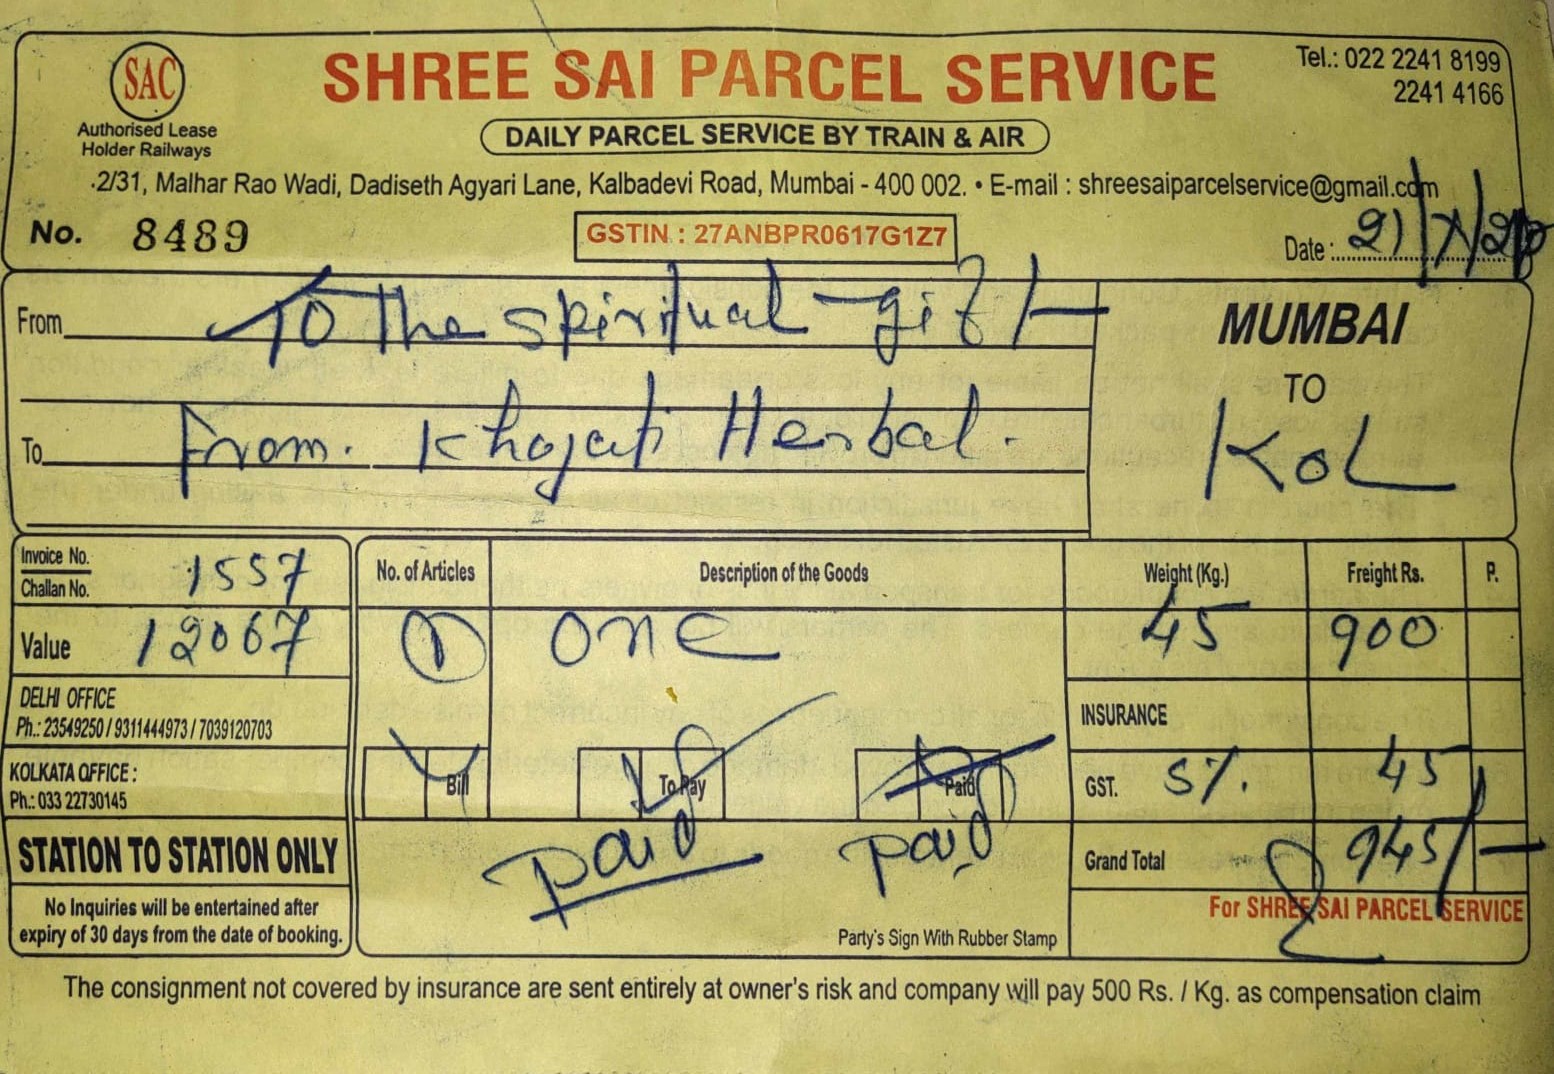 SAC
Authorised Lease
Holder Railways
SHREE SAI PARCEL SERVICE
Tel.: 022 2241 8199
2241 4166
DAILY PARCEL SERVICE BY TRAIN & AIR
2/31, Malhar Rao Wadi, Dadiseth Agyari Lane, Kalbadevi Road, Mumbai - 400 002. • E-mail : shreesaiparcelservice@gmail.com
No. 8489
GSTIN : 27ANBPR0617G1Z7
Date : 21/7/20
From To The spiritual gift
To From. Khojati Herbal.
MUMBAI
TO
KOL
Invoice No.
Challan No.
1557
Value 12067
DELHI OFFICE
Ph.: 23549250 / 9311444973 / 7039120703
KOLKATA OFFICE :
Ph.: 033 22730145
STATION TO STATION ONLY
No Inquiries will be entertained after
expiry of 30 days from the date of booking.
No. of Articles Description of the Goods Weight (Kg.) Freight Rs. P.
1 one 45 900
INSURANCE
Bill To Pay Paid
GST. 5%. 45
paid paid
Grand Total 945/-
For SHREE SAI PARCEL SERVICE
Party's Sign With Rubber Stamp
The consignment not covered by insurance are sent entirely at owner's risk and company will pay 500 Rs. / Kg. as compensation claim